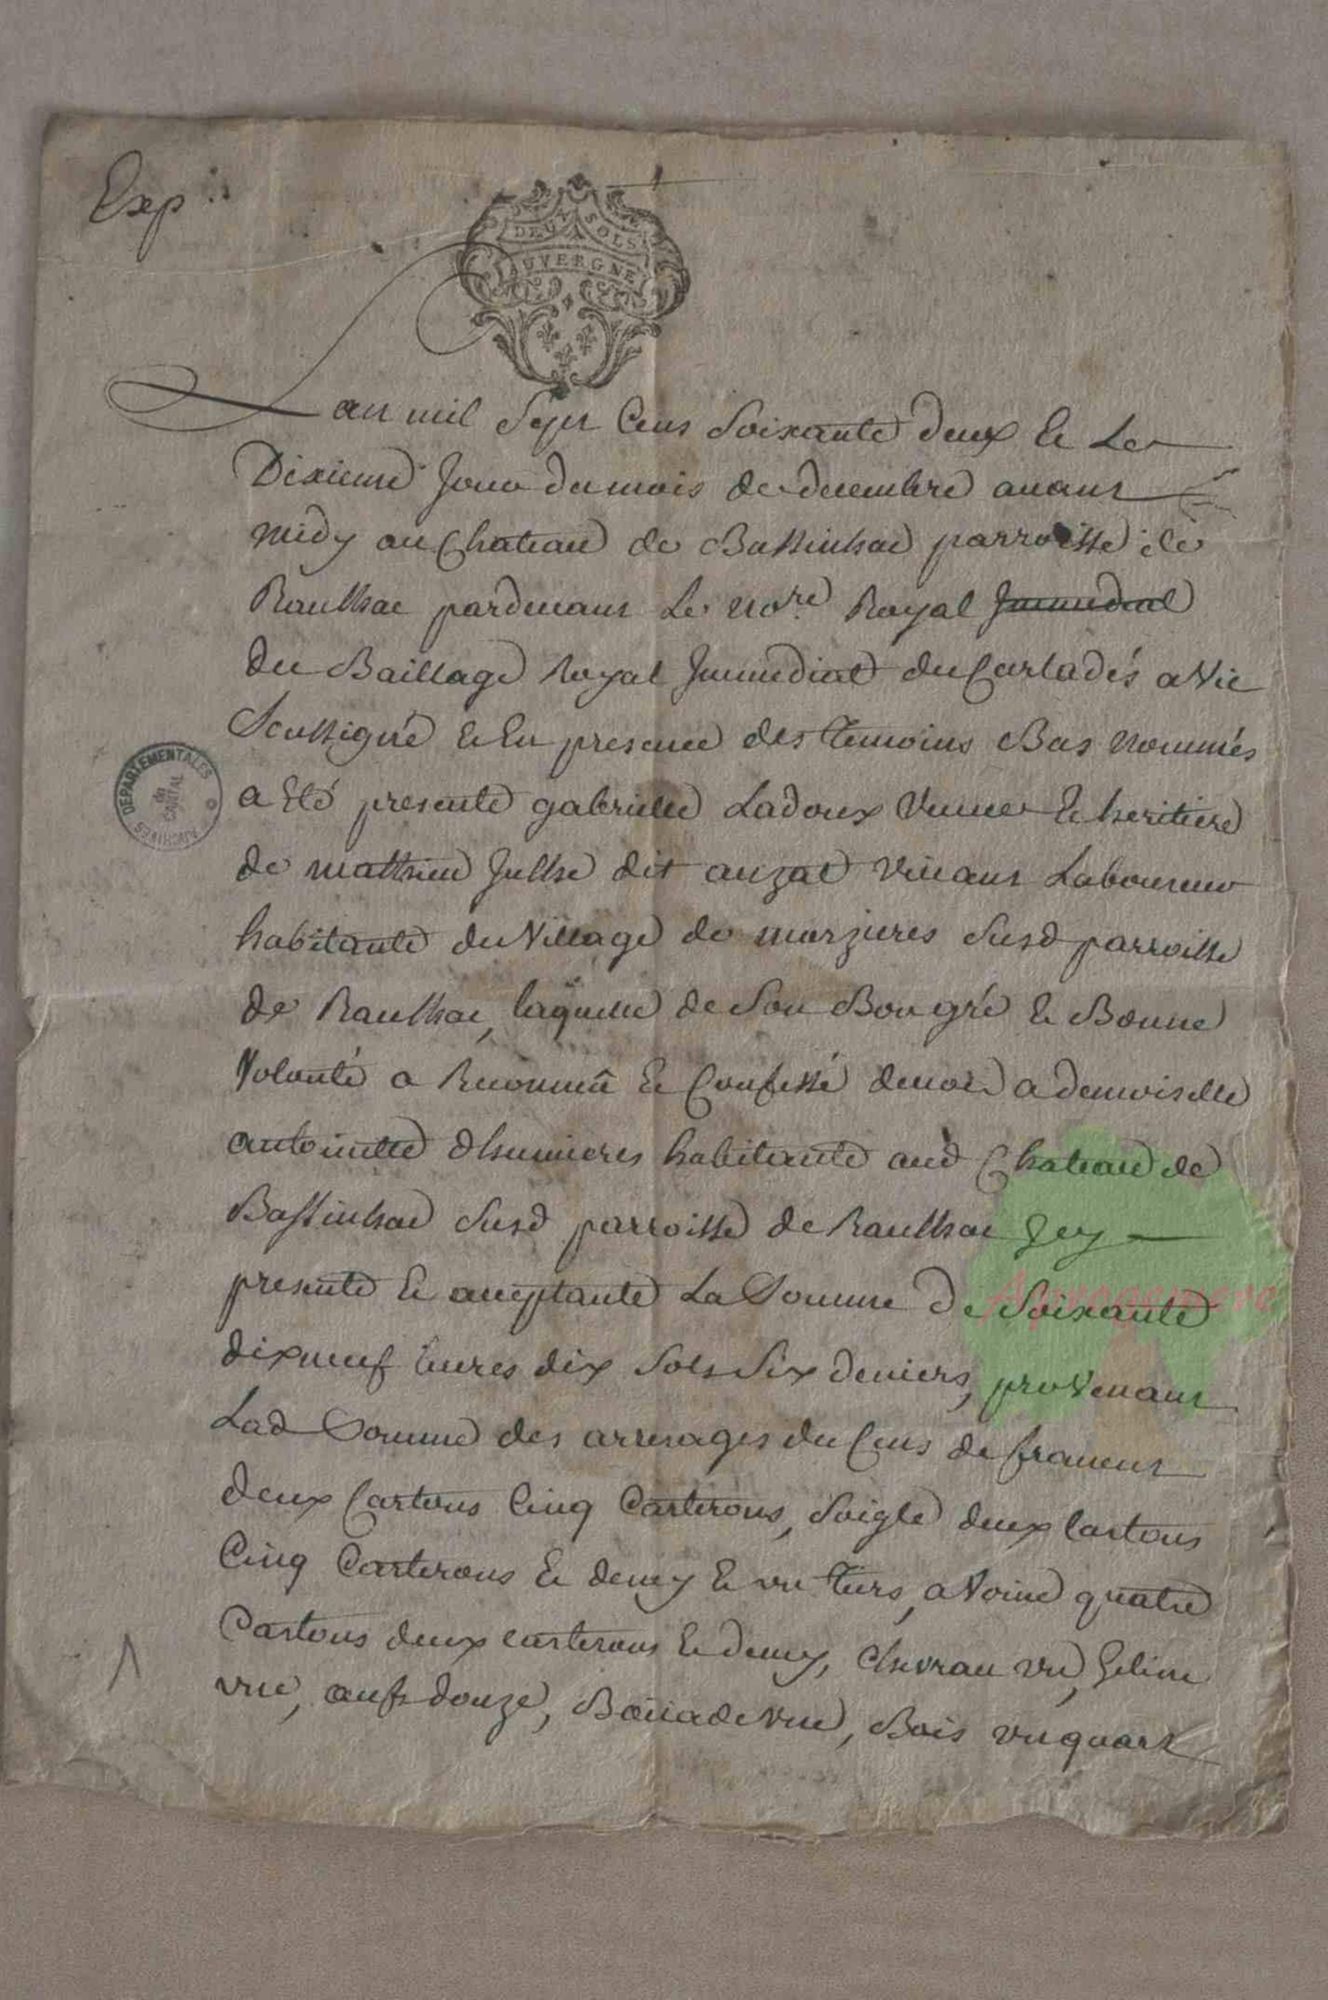 Exp.
DEUX SOLS
AUVERGNE
Lan mil Sept Cens Soixante deux & Le
Dixieme Jour du mois de decembre auant
midy au Chateau de Bassinhac parroisse de
Raulhac pardeuant Le no.re Royal Immediat
du Baillage Royal Immediat du Carladés a Vic
Soussigné & En presence des temoins Bas nommés
a eté presente gabrielle Ladoux Veuue & heritiere
de mathieu Julhe dit auzat viuant Laboureur
habitante du Village de morzieres Susd parroisse
de Raulhac, laquelle de Son Bon gré & Bonne
Volonté a Reconnu & Confessé deuoir a demoiselle
antoinette dhumieres habitante aud Chateau de
Bassinhac Susd parroisse de Raulhac Jcy
presente & acceptante La Somme de Soixante
dixneuf liures dix Sols Six deniers, provenant
Lad Somme des arrerages du Cens de froment
deux Cartons Cinq Carterons, Soigle deux Cartons
Cinq Carterons & demy & un tiers, avoine quatre
Cartons deux carterons & demy, chevrau un, Geline
une, œufs douze, Boüade une, Bois un quart
ARCHIVES DEPARTEMENTALES
du
CANTAL
Aprogemere
1